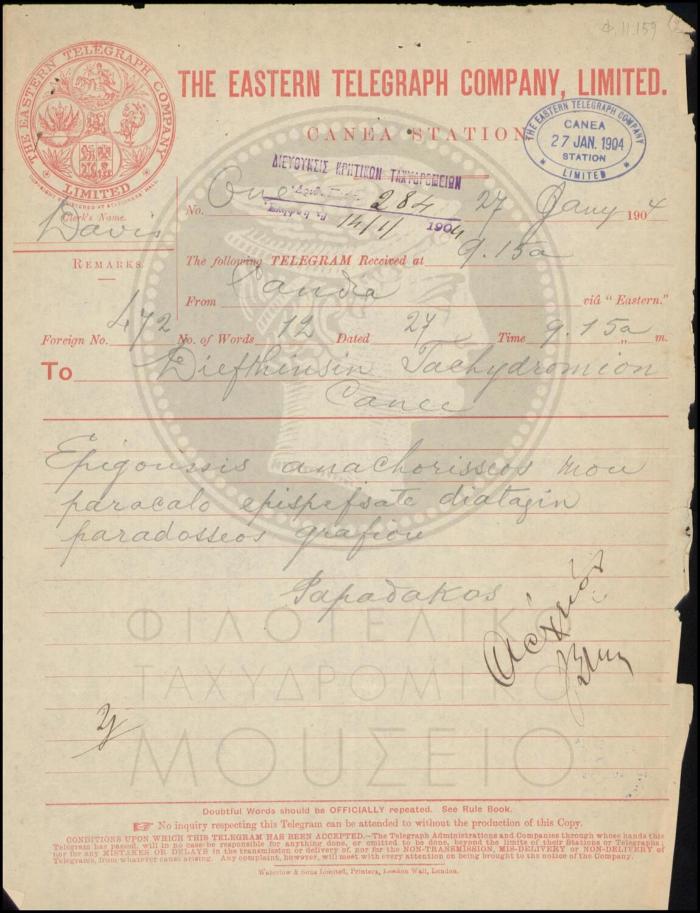 Φ.11.159
THE EASTERN TELEGRAPH COMPANY LIMITED
COPYRIGHT REGISTERED AT STATIONERS HALL
THE EASTERN TELEGRAPH COMPANY, LIMITED.
CANEA STATION
THE EASTERN TELEGRAPH COMPANY
CANEA
27 JAN. 1904
STATION
LIMITED
ΔΙΕΥΘΥΝΣΙΣ ΚΡΗΤΙΚΩΝ ΤΑΧΥΔΡΟΜΕΙΩΝ
284
14/1/ 1904
Clerk's Name.
Davis
No. One 27 Jany 1904
REMARKS
The following TELEGRAM Received at 9.15a
From Candia viâ "Eastern."
Foreign No. 472 No. of Words 12 Dated 27 Time 9.15a m.
To Diefthinsin Tachydromion
Canee
Epigoussis anachorisseos mou
paracalo epispefsate diatagin
paradosseos grafiou
Papadakos
ΦΙΛΟΤΕΛΙΚΟ
ΤΑΧΥΔΡΟΜΙΚΟ
ΜΟΥΣΕΙΟ
Doubtful Words should be OFFICIALLY repeated. See Rule Book.
No inquiry respecting this Telegram can be attended to without the production of this Copy.
CONDITIONS UPON WHICH THIS TELEGRAM HAS BEEN ACCEPTED.—The Telegraph Administrations and Companies through whose hands this
Telegram has passed, will in no case be responsible for anything done, or omitted to be done, beyond the limits of their Stations or Telegraphs;
nor for any MISTAKES OR DELAYS in the transmission or delivery of, nor for the NON-TRANSMISSION, MIS-DELIVERY or NON-DELIVERY of
Telegrams, from whatever cause arising. Any complaint, however, will meet with every attention on being brought to the notice of the Company.
Waterlow & Sons Limited, Printers, London Wall, London.